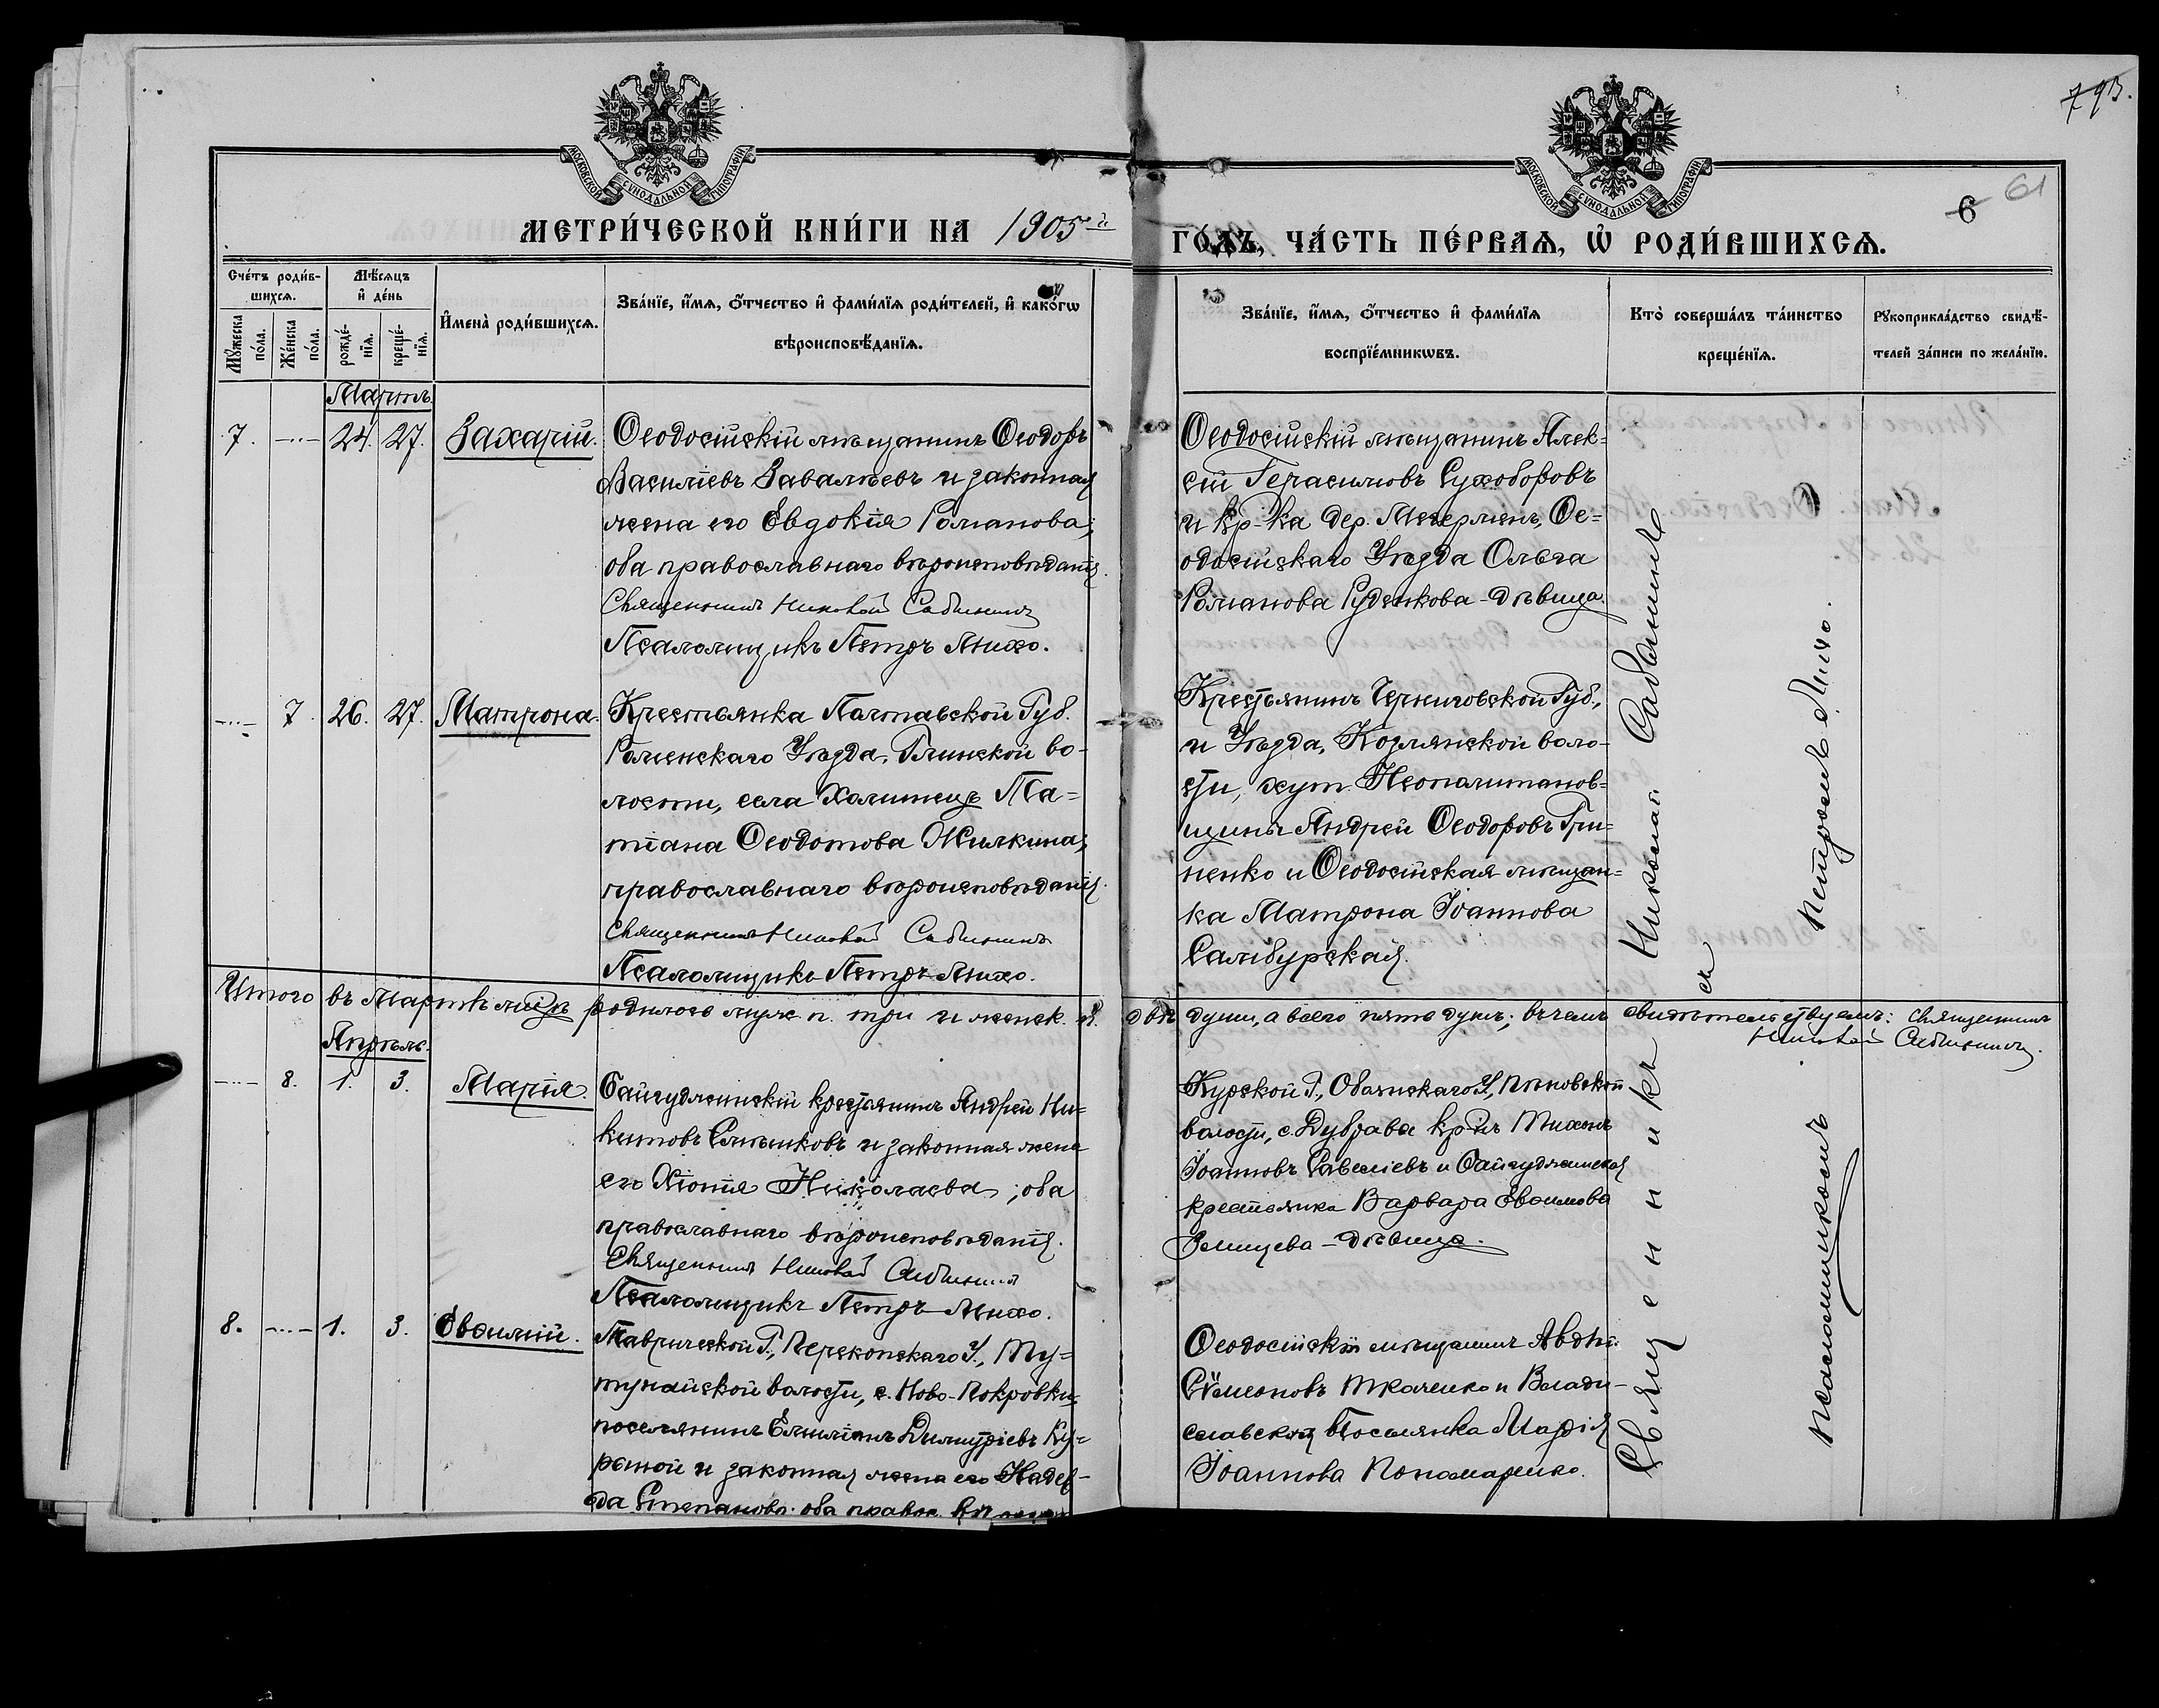 793.
МОСКОВСКОЙ СѴНОДАЛЬНОЙ ТИПОГРАФІИ
МОСКОВСКОЙ СѴНОДАЛЬНОЙ ТИПОГРАФІИ
6 61
МЕТРИ́ЧЕСКОЙ КНИ́ГИ НА 1905й
ГО́ДЪ, ЧА́СТЬ ПЕ́РВАѦ, Ѡ҆ РОДИ́ВШИХСѦ.
Сче́тъ роди́в-
шихсѧ.
Мѣ́сѧцъ
и҆ де́нь
Мꙋ́жеска по́ла.
Же́нска по́ла.
рожде́-
нїѧ.
креще́-
нїѧ.
И҆мена̀ роди́вшихсѧ.
Зва́нїе, и҆́мѧ, ѻ҆́тчество и҆ фами́лїѧ роди́телей, и҆ како́гѡ
вѣроисповѣ́данїѧ.
Зва́нїе, и҆́мѧ, ѻ҆́тчество и҆ фами́лїѧ
воспрїе́мникѡвъ.
Кто̀ соверша́лъ та́инство
креще́нїѧ.
Рꙋкоприкла́дство свидѣ́-
телей за́писи по жела́нїю.
Мартъ.
7. — 24. 27. Захарій.
Ѳеодосійскій мѣщанинъ Ѳеодоръ
Василіевъ Завалѣевъ и законная
жена его Евдокія Романова;
оба православнаго вѣроисповѣданія.
Священникъ Николай Сабининъ
Псаломщикъ Петръ Лихо.
Ѳеодосійскій мѣщанинъ Алек-
сій Герасимовъ Сухоборовъ
и кр-ка дер. Мегерменъ, Ѳе-
одосійскаго Уѣзда Ольга
Романова Руденкова - дѣвица.
— 7. 26. 27. Матрона.
Крестьянка Полтавской Губ.
Роменскаго Уѣзда, Глинской во-
лости, села Холминецъ Та-
тіана Ѳеодотова Жилкина;
православнаго вѣроисповѣданія.
Священникъ Николай Сабининъ
Псаломщикъ Петръ Лихо.
Крестьянинъ Черниговской Губ.,
и Уѣзда, Козлянской воло-
сти, хут. Неополитанов-
щины Андрей Ѳеодоровъ Гри-
ненко и Ѳеодосійская мѣщан-
ка Матрона Іоаннова
Самбурская.
Итого въ Мартѣ мцѣ родилось муж. п. три и женск. п. двѣ души, а всего пять душъ; въ чемъ свидѣтельствуемъ: Священникъ
Николай Сабининъ.
Апрѣль.
— 8. 1. 3. Марія.
Байгуджинскій крестьянинъ Андрей Ни-
китовъ Смѣшковъ и законная жена
его Хіонія Николаева; оба
православнаго вѣроисповѣданія.
Священникъ Николай Сабининъ
Псаломщикъ Петръ Лихо.
Курской Г., Обоянскаго У., Пѣновской
волости, с. Дубрава кр-нъ Тихонъ
Іоанновъ Савеліевъ и Байгуджинская
крестьянка Варвара Евѳимова
Земцева - дѣвица.
8. — 1. 3. Евѳимій.
Таврической Г., Перекопскаго У., Ту-
тунайской волости, с. Ново-Покровки,
поселянинъ Емиліанъ Димитріевъ Ку-
рочной и законная жена его Надеж-
да Степанова; оба правос.
Ѳеодосійскій мѣщанинъ Авдій
Сѵмеоновъ Ткаченко и Влади-
славская поселянка Марія
Іоаннова Пономаренко.
Священникъ Николай Сабининъ
съ
псаломщикомъ Петромъ Лихо.